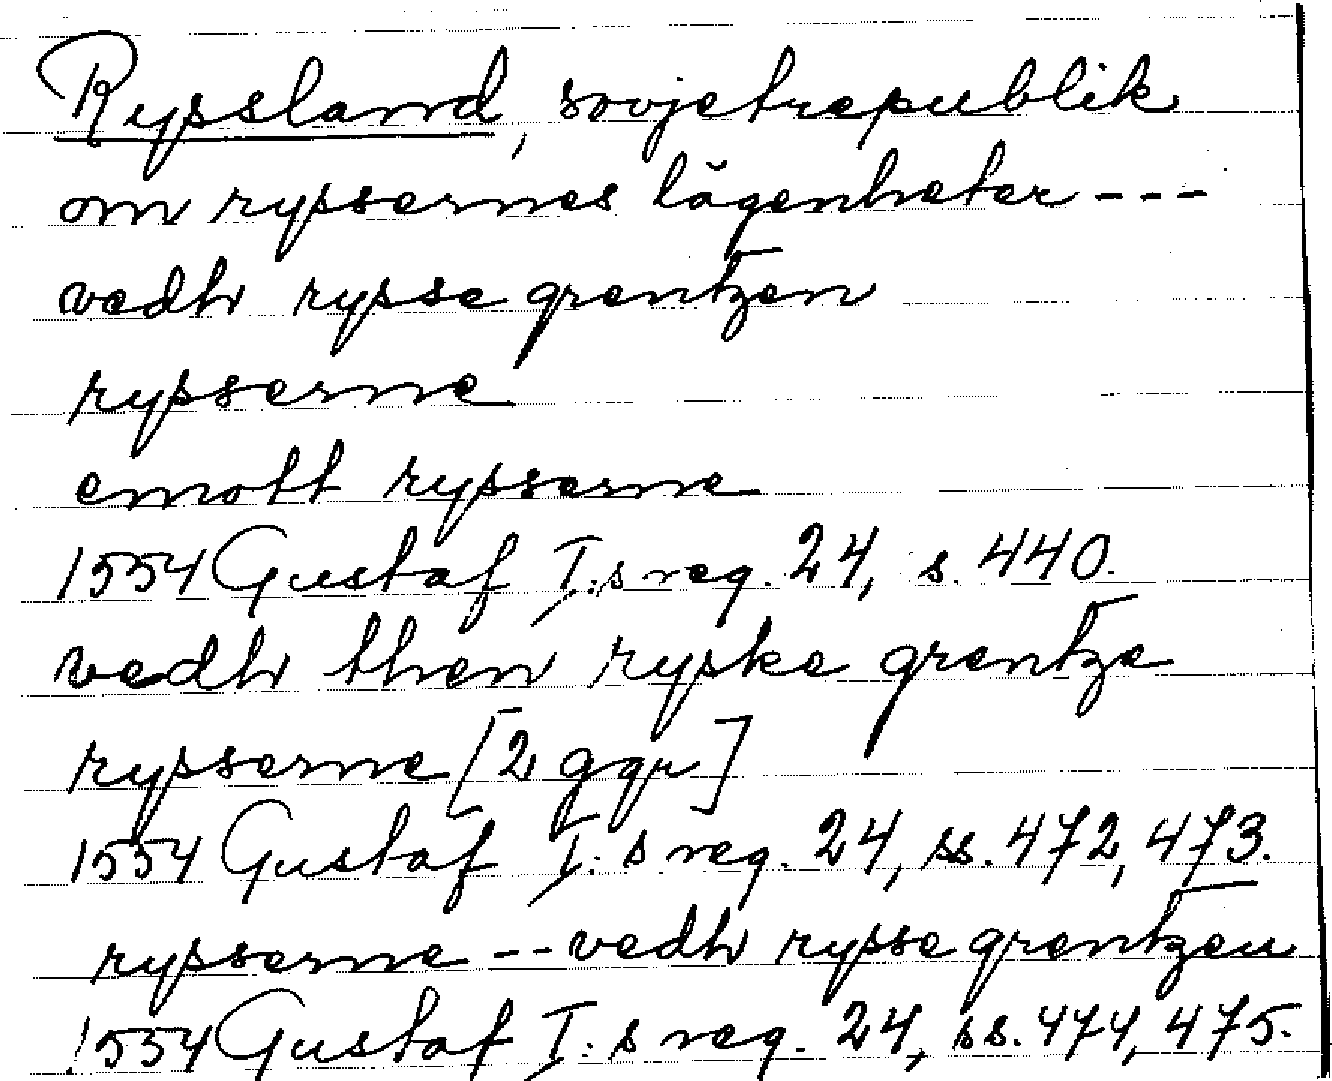 Ryssland, sovjetrepublik
om ryssernes lägenheter ---
vedh rysse grentzen
rysserne
emott rysserne
1554 Gustaf I:s reg. 24, s. 440.
vedh then ryske grentze
rysserne [2 ggr]
1554 Gustaf I:s reg. 24, ss. 472, 473.
rysserne -- vedh rysse grentzen
1554 Gustaf I:s reg. 24, ss. 474, 475.